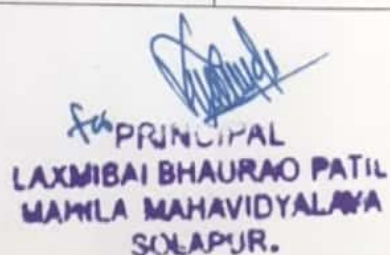 for PRINCIPAL
LAXMIBAI BHAURAO PATIL
MAHILA MAHAVIDYALAYA
SOLAPUR.